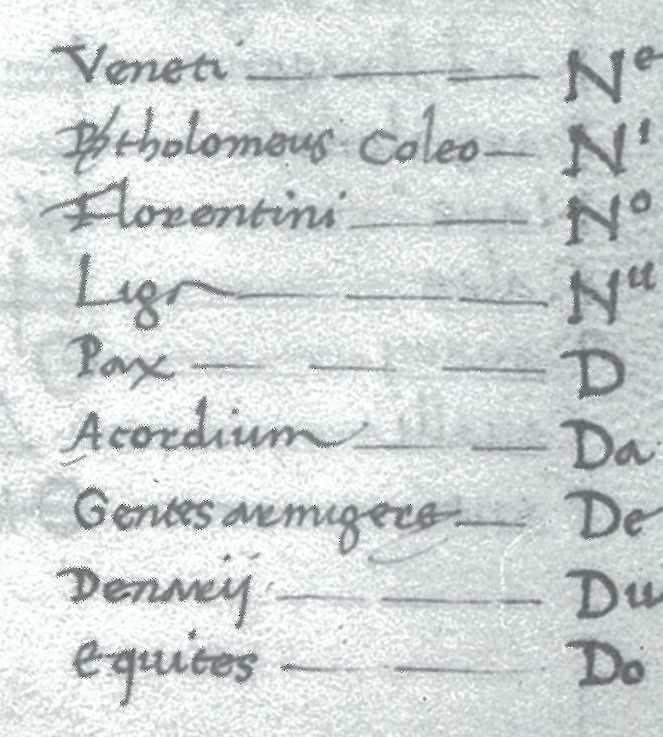 Veneti N^e
Btholomeus Coleo N^i
Florentini N^o
Liga N^u
Pax D
Acordium Da
Gentes armigere De
Denarij Du
equites Do